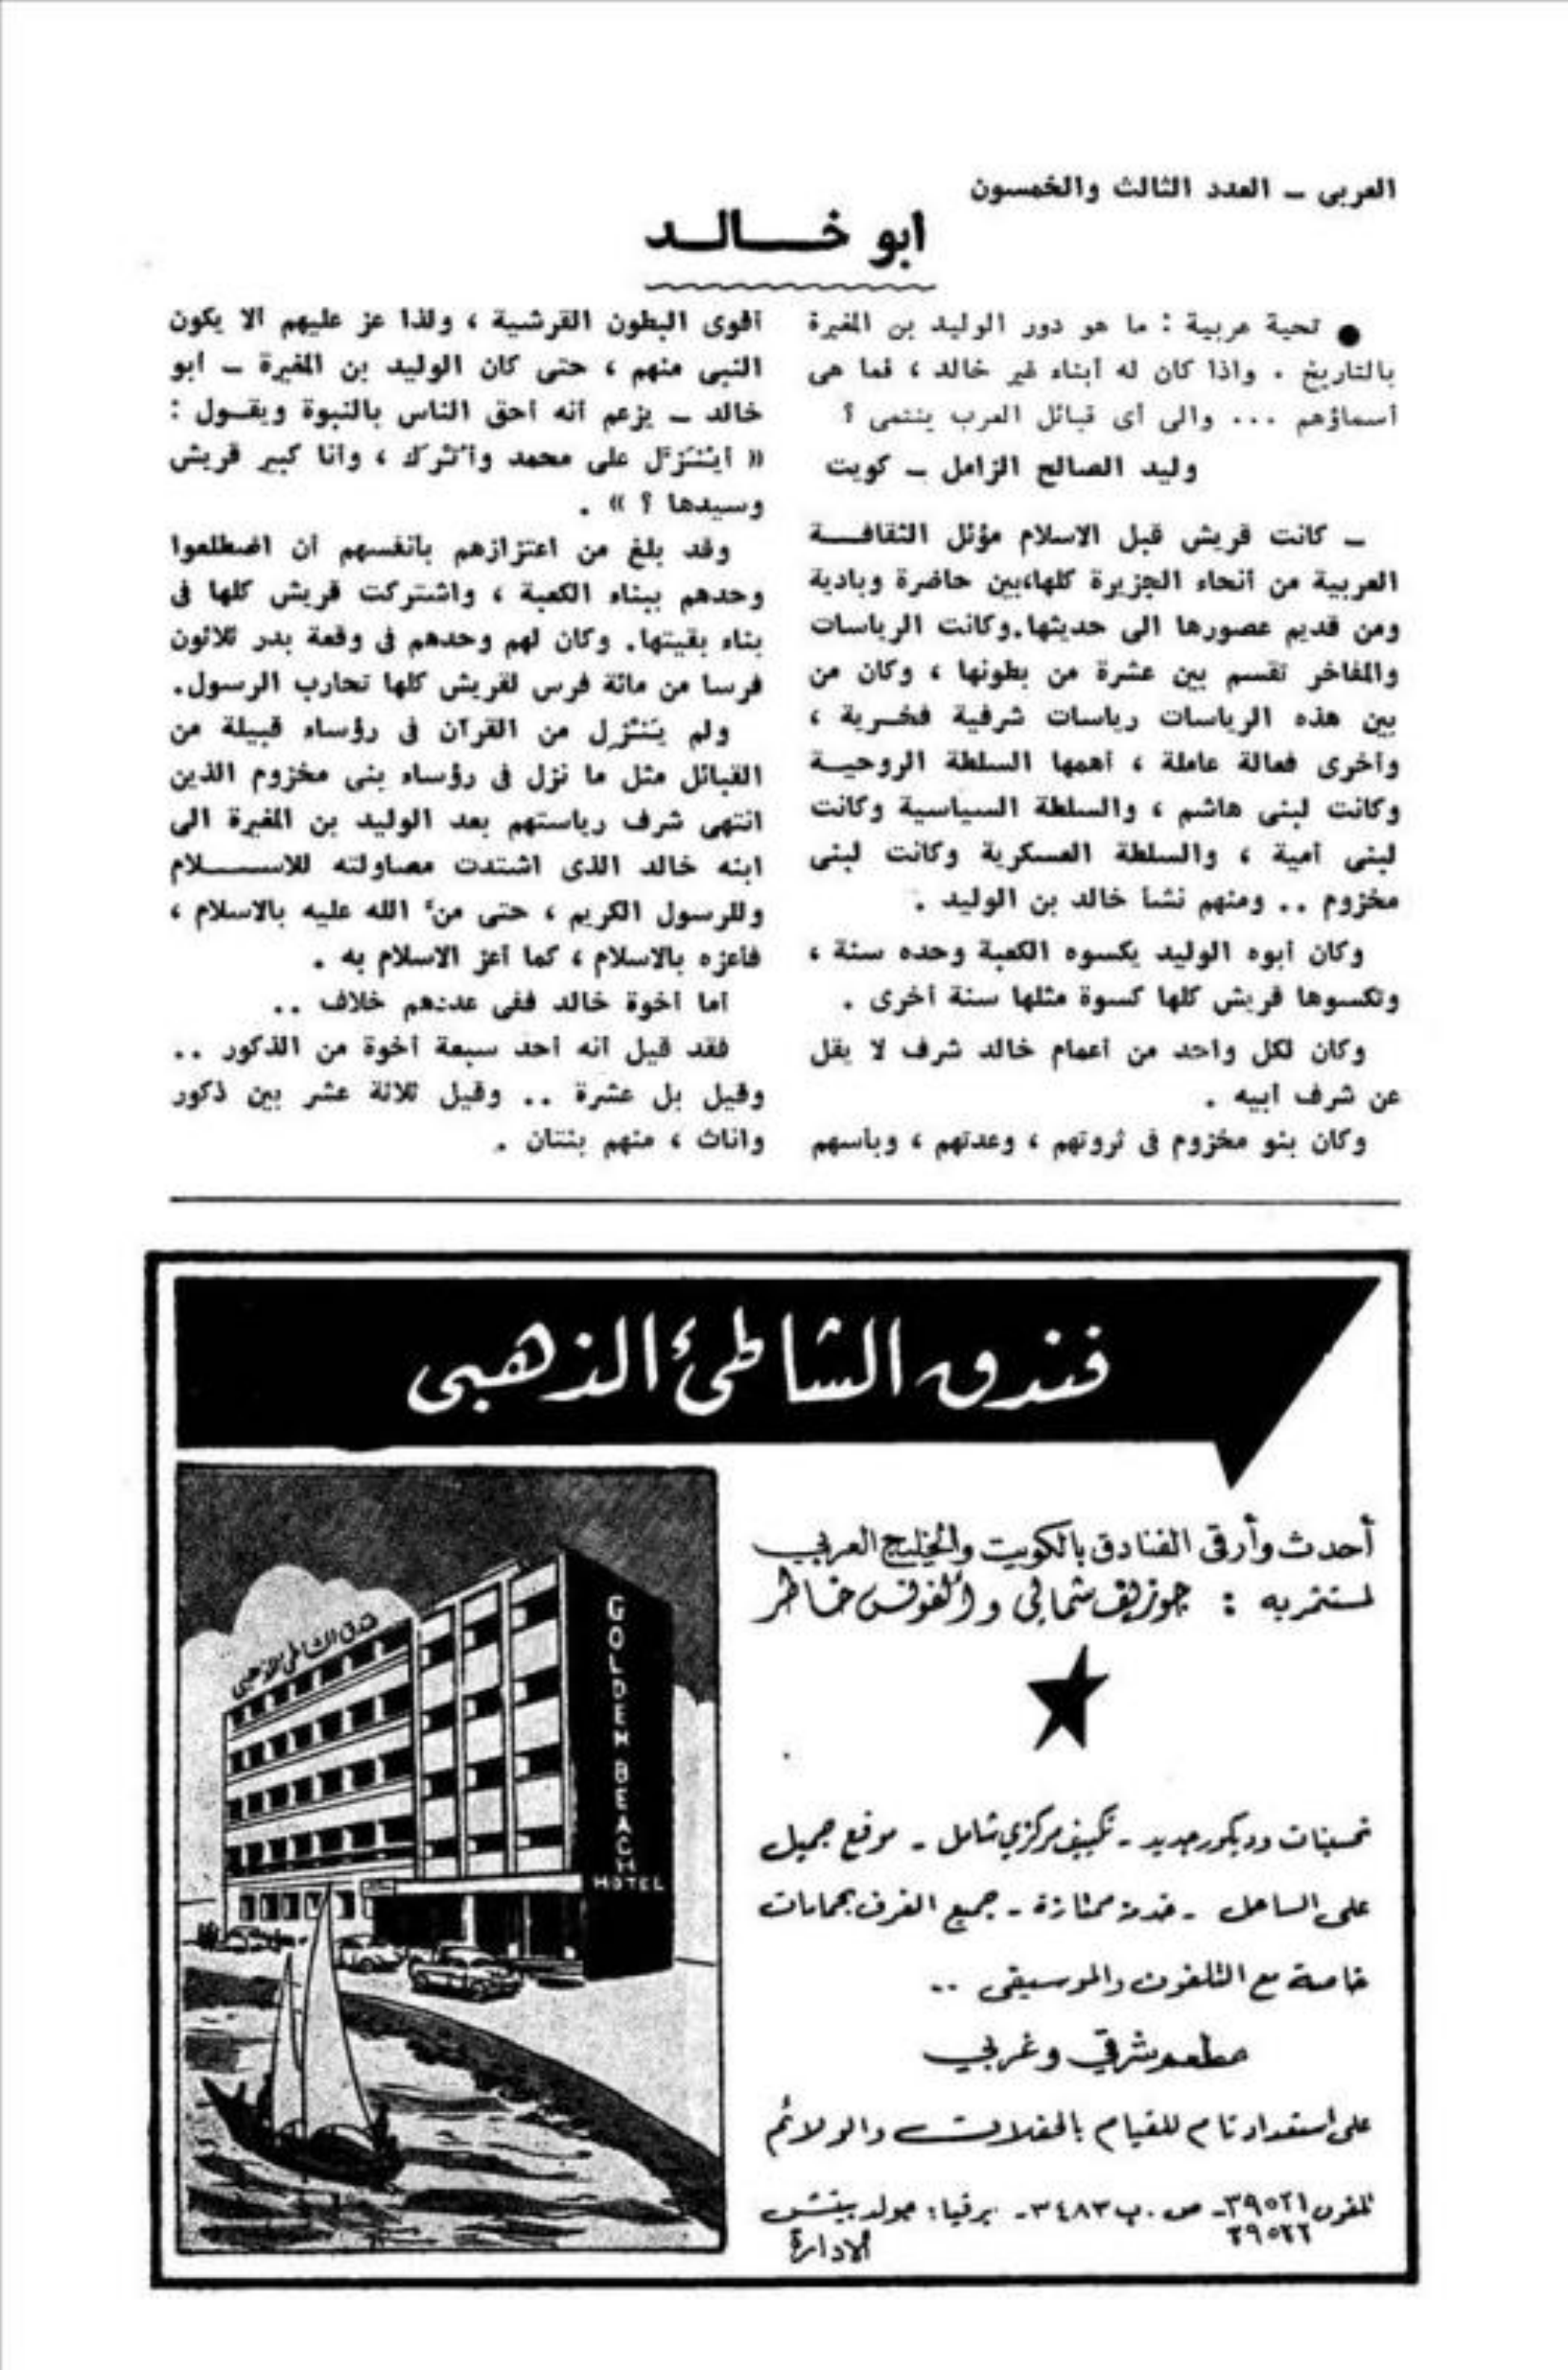 العربى – العدد الثالث والخمسون
ابو خـــالـــد
● تحية عربية : ما هو دور الوليد بن المغيرة
بالتاريخ . واذا كان له أبناء غير خالد ، فما هى
أسماؤهم ... والى أى قبائل العرب ينتمى ؟
وليد الصالح الزامل – كويت
– كانت قريش قبل الاسلام مؤئل الثقافـــة
العربية من أنحاء الجزيرة كلها،بين حاضرة وبادية
ومن قديم عصورها الى حديثها.وكانت الرياسات
والمفاخر تقسم بين عشرة من بطونها ، وكان من
بين هذه الرياسات رياسات شرفية فخـرية ،
وأخرى فعالة عاملة ، أهمها السلطة الروحيــة
وكانت لبنى هاشم ، والسلطة السياسية وكانت
لبنى أمية ، والسلطة العسكرية وكانت لبنى
مخزوم .. ومنهم نشأ خالد بن الوليد .
وكان أبوه الوليد يكسوه الكعبة وحده سنة ،
وتكسوها قريش كلها كسوة مثلها سنة أخرى .
وكان لكل واحد من أعمام خالد شرف لا يقل
عن شرف أبيه .
وكان بنو مخزوم فى ثروتهم ، وعدتهم ، وبأسهم
أقوى البطون القرشية ، ولذا عز عليهم ألا يكون
النبى منهم ، حتى كان الوليد بن المغيرة – أبو
خالد – يزعم أنه أحق الناس بالنبوة ويقــول :
« أيُنْزَل على محمد وأُترك ، وأنا كبير قريش
وسيدها ؟ » .
وقد بلغ من اعتزازهم بأنفسهم أن اضطلعوا
وحدهم ببناء الكعبة ، واشتركت قريش كلها فى
بناء بقيتها. وكان لهم وحدهم فى وقعة بدر ثلاثون
فرسا من مائة فرس لقريش كلها تحارب الرسول.
ولم يَنْزِل من القرآن فى رؤساء قبيلة من
القبائل مثل ما نزل فى رؤساء بنى مخزوم الذين
انتهى شرف رياستهم بعد الوليد بن المغيرة الى
ابنه خالد الذى اشتدت مصاولته للاســـلام
وللرسول الكريم ، حتى منّ الله عليه بالاسلام ،
فأعزه بالاسلام ، كما أعز الاسلام به .
أما أخوة خالد ففى عددهم خلاف ..
فقد قيل أنه أحد سبعة أخوة من الذكور ..
وقيل بل عشرة .. وقيل ثلاثة عشر بين ذكور
واناث ، منهم بنتان .
فندق الشاطئ الذهبى
أحدث وأرقى الفنادق بالكويت والخليج العربي
لمستثمريه : جوزيف شمالي و ألفونس خاطر
تحسينات وديكور جديد - تكييف مركزي شامل - موقع جميل
على الساحل - خدمة ممتازة - جميع الغرف بحمامات
خاصة مع التلفون والموسيقى ..
مطعم شرقي وغربي
على استعداد تام للقيام بالحفلات والولائم
تلفون ٣٩٥٢١ - ص . ب ٣٤٨٣ - برقيا : جولد بيتش
٣٩٥٢٢
الادارة
فندق الشاطئ الذهبى
GOLDEN BEACH
HOTEL